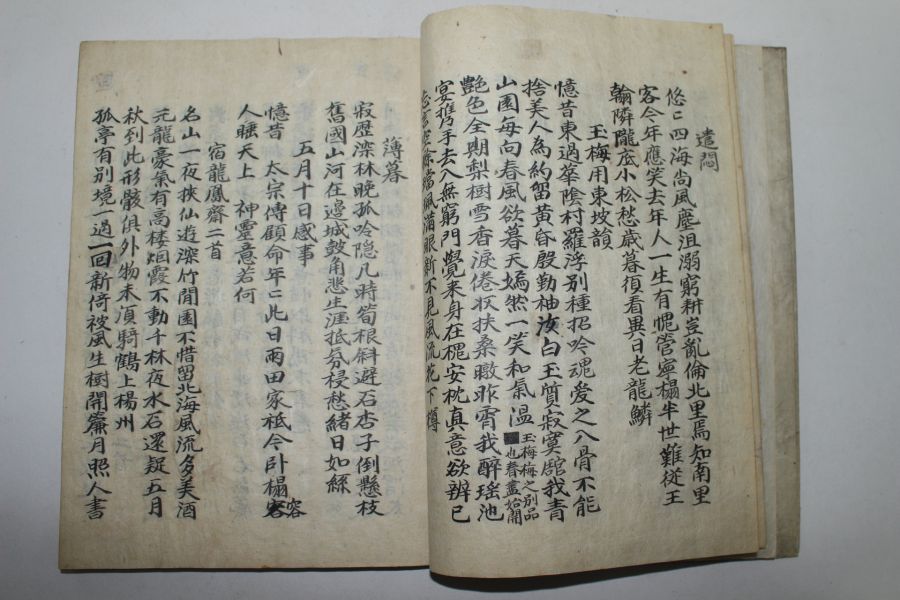 遣悶
悠〻四海尚風塵沮溺窮耕豈亂倫北里焉知南里
客今年應笑去年人一生有愧管寧榻半世難從王
翰隣隴底小松愁歲暮須看異日老龍鱗
玉梅用東坡韻
憶昔東過華陰村羅浮別種招吟魂愛之入骨不能
捨美人為約留黃昏殷勤袖 白玉質寂寞舘我青
山園每向春風欲暮天嫣然一笑和氣溫 玉梅梅之別品也春盡始開
艶色全期梨樹雪香淚倦扶桑暾昨宵我醉瑤池
宴携手去入無窮門覺來身在槐安枕真意欲辨已
忘言空餘 佩滿眼新不見風流花下罇
薄暮
寂歷深林晚孤吟隐几時筍根斜避石杏子倒懸枝
舊國山河在邊城鼓角悲生涯抵 愁緖日如絲
五月十日感事
憶昔 太宗傳顧命年〻此日雨田家祗今卧榻客 容
人睡天上 神靈意若何
宿龍鳳齋二首
名山一夜挾仙遊深竹閒園不惜留北海風流多美酒
元龍豪氣有高樓烟霞不動千林夜水石還疑五月
秋到此形骸俱外物未須騎鶴上楊州
孤亭有別境一過一回新倚被風生樹開簾月照人書